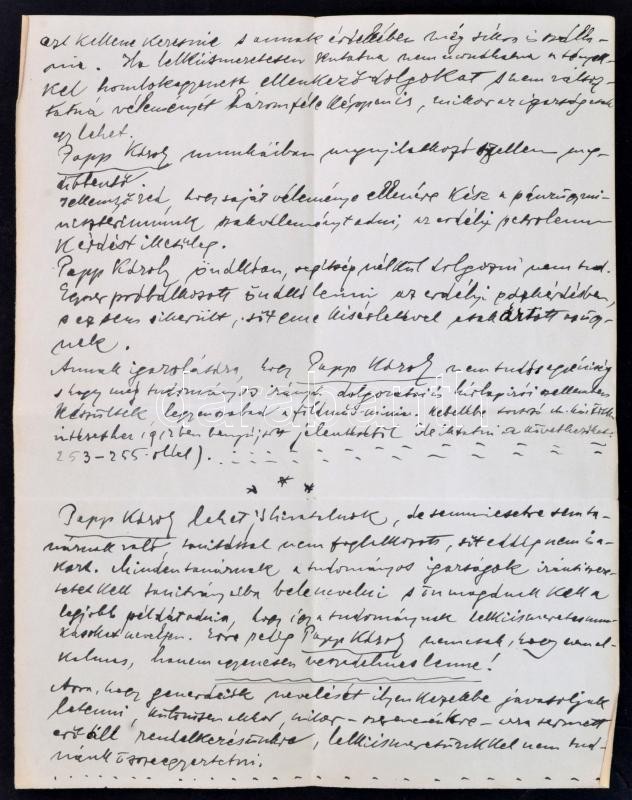 azt kellene keresnie s annak érdekében még síkra is száll-
nia. Ha lelkiismeretesen kutatna nem mondhatna a tények-
kel homlokegyenest ellenkező dolgokat s nem változ-
tatná véleményét háromféleképpen is, mikor az igazság csak
egy lehet.
Papp Károly munkáiban megnyilatkozó szellem meg-
döbbentő.
Jellemző reá, hogy saját véleménye ellenére kész a pénzügymi-
niszteriumnak szakvéleményt adni, az erdélyi petroleum
kérdést illetőleg.
Papp Károly önállóan, segítség nélkül dolgozni nem tud.
Egyszer próbálkozott önálló lenni az erdélyi gázkérdésben,
s ez sem sikerült, sőt eme kisérletével csak ártott az ügy-
nek.
Annak igazolására, hogy Papp Károly nem tudós egyéniség
s hogy még tudományos irányú dolgozatai is hirlapirói szellemben
készültek, legyen szabad a földmív. minisz. kebelébe tartozó
intézethez 1912 ben benyújtott jelentésből ide iktatni a következőket:
253-255. oldal).
* * *
Papp Károly lehet jó hivatalnok, de semmiesetre sem ta-
nárnak való, tanítással nem foglalkozott, sőt eddig nem is a-
kart. Minden tanárnak a tudományos igazságok iránti szere-
tetet kell tanítványaiba belenevelni s önmagának kell a
legjobb példát adnia, hogy így a tudománynak lelkiismeretes mun-
kásokat neveljen. Erre pedig Papp Károly nemcsak, hogy nem al-
kalmas, hanem egyenesen veszedelmes lenne!
Arra, hogy generációk nevelését ilyen kezekbe javasoljuk
letenni, különösen akkor, mikor - szerencsénkre - arra termett
erő áll rendelkezésünkre, lelkiismeretünkkel nem tud-
nánk összeegyeztetni.
darabanth